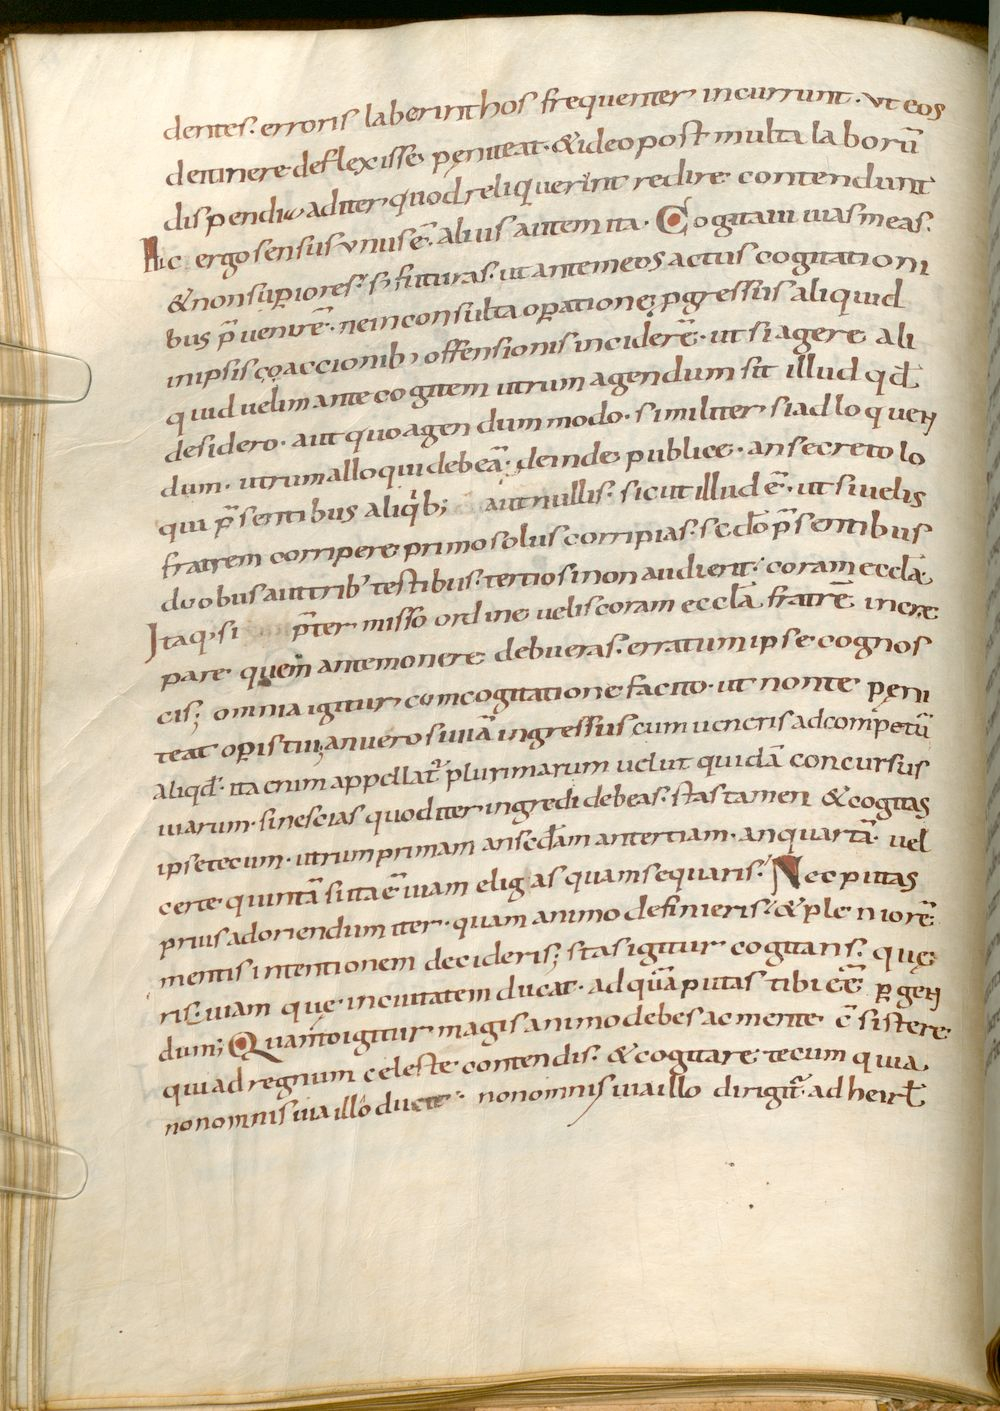 dentes. erroris laberinthos frequenter incurrunt. ut eos
detinere deflexisse peniteat. & ideo post multa laborū
dispendia ad iter quod reliquerint redire contendunt
Hic ergo sensus unus ē. alius autem ita. Cogitaui uias meas.
& non supiores. s; futuras. ut ante meos actus cogitationi
bus p̄uenirē. ne inconsulta opatione pgressus aliquid
in ipsis accionib; offensionis inciderē. ut si agere ali
quid uelim ante cogitem utrum agendum sit illud qđ
desidero. aut quo agendum modo. similiter si ad loquen
dum. utrum alloqui debeā. deinde publice. an secreto lo
qui p̄sentibus aliqib; aut nullis. sicut illud ē. ut si uelis
fratrem corripere primo solus corripias. secdo p̄sentibus
duobus aut trib' testibus. tertio si non audierit. coram eccła
Itaq; si p̄termisso ordine uelis coram eccła fratrē incre
pare quem ante monere debueras. erratum ipse cognos
cis; omnia igitur cum cogitatione facito. ut non te peni
teat opis tui; an uero si uiā ingressus cum ueneris ad competū
aliqđ. ita enim appellat̄ plurimarum uelut quidā concursus
uiarum. si nescias quod iter ingredi debeas. stas tamen & cogitas
ipse tecum. utrum primam an secđam an tertiam. an quartā. uel
certe quintā si ita ē uiam eligas quam sequaris. Nec putas
prius adoriendum iter. quam animo definieris. & pleniorē
mentis intentionem decideris; stas igitur cogitans. que
ris uiam que in ciuitatem ducat. ad quā putas tibi eē pgen
dum; Quanto igitur magis animo debes ac mente c̄sistere
qui ad regnum celeste contendis. & cogitare tecum quia
non omnis uia illo ducit. non omnis uia illo dirigit̄ ad heirł